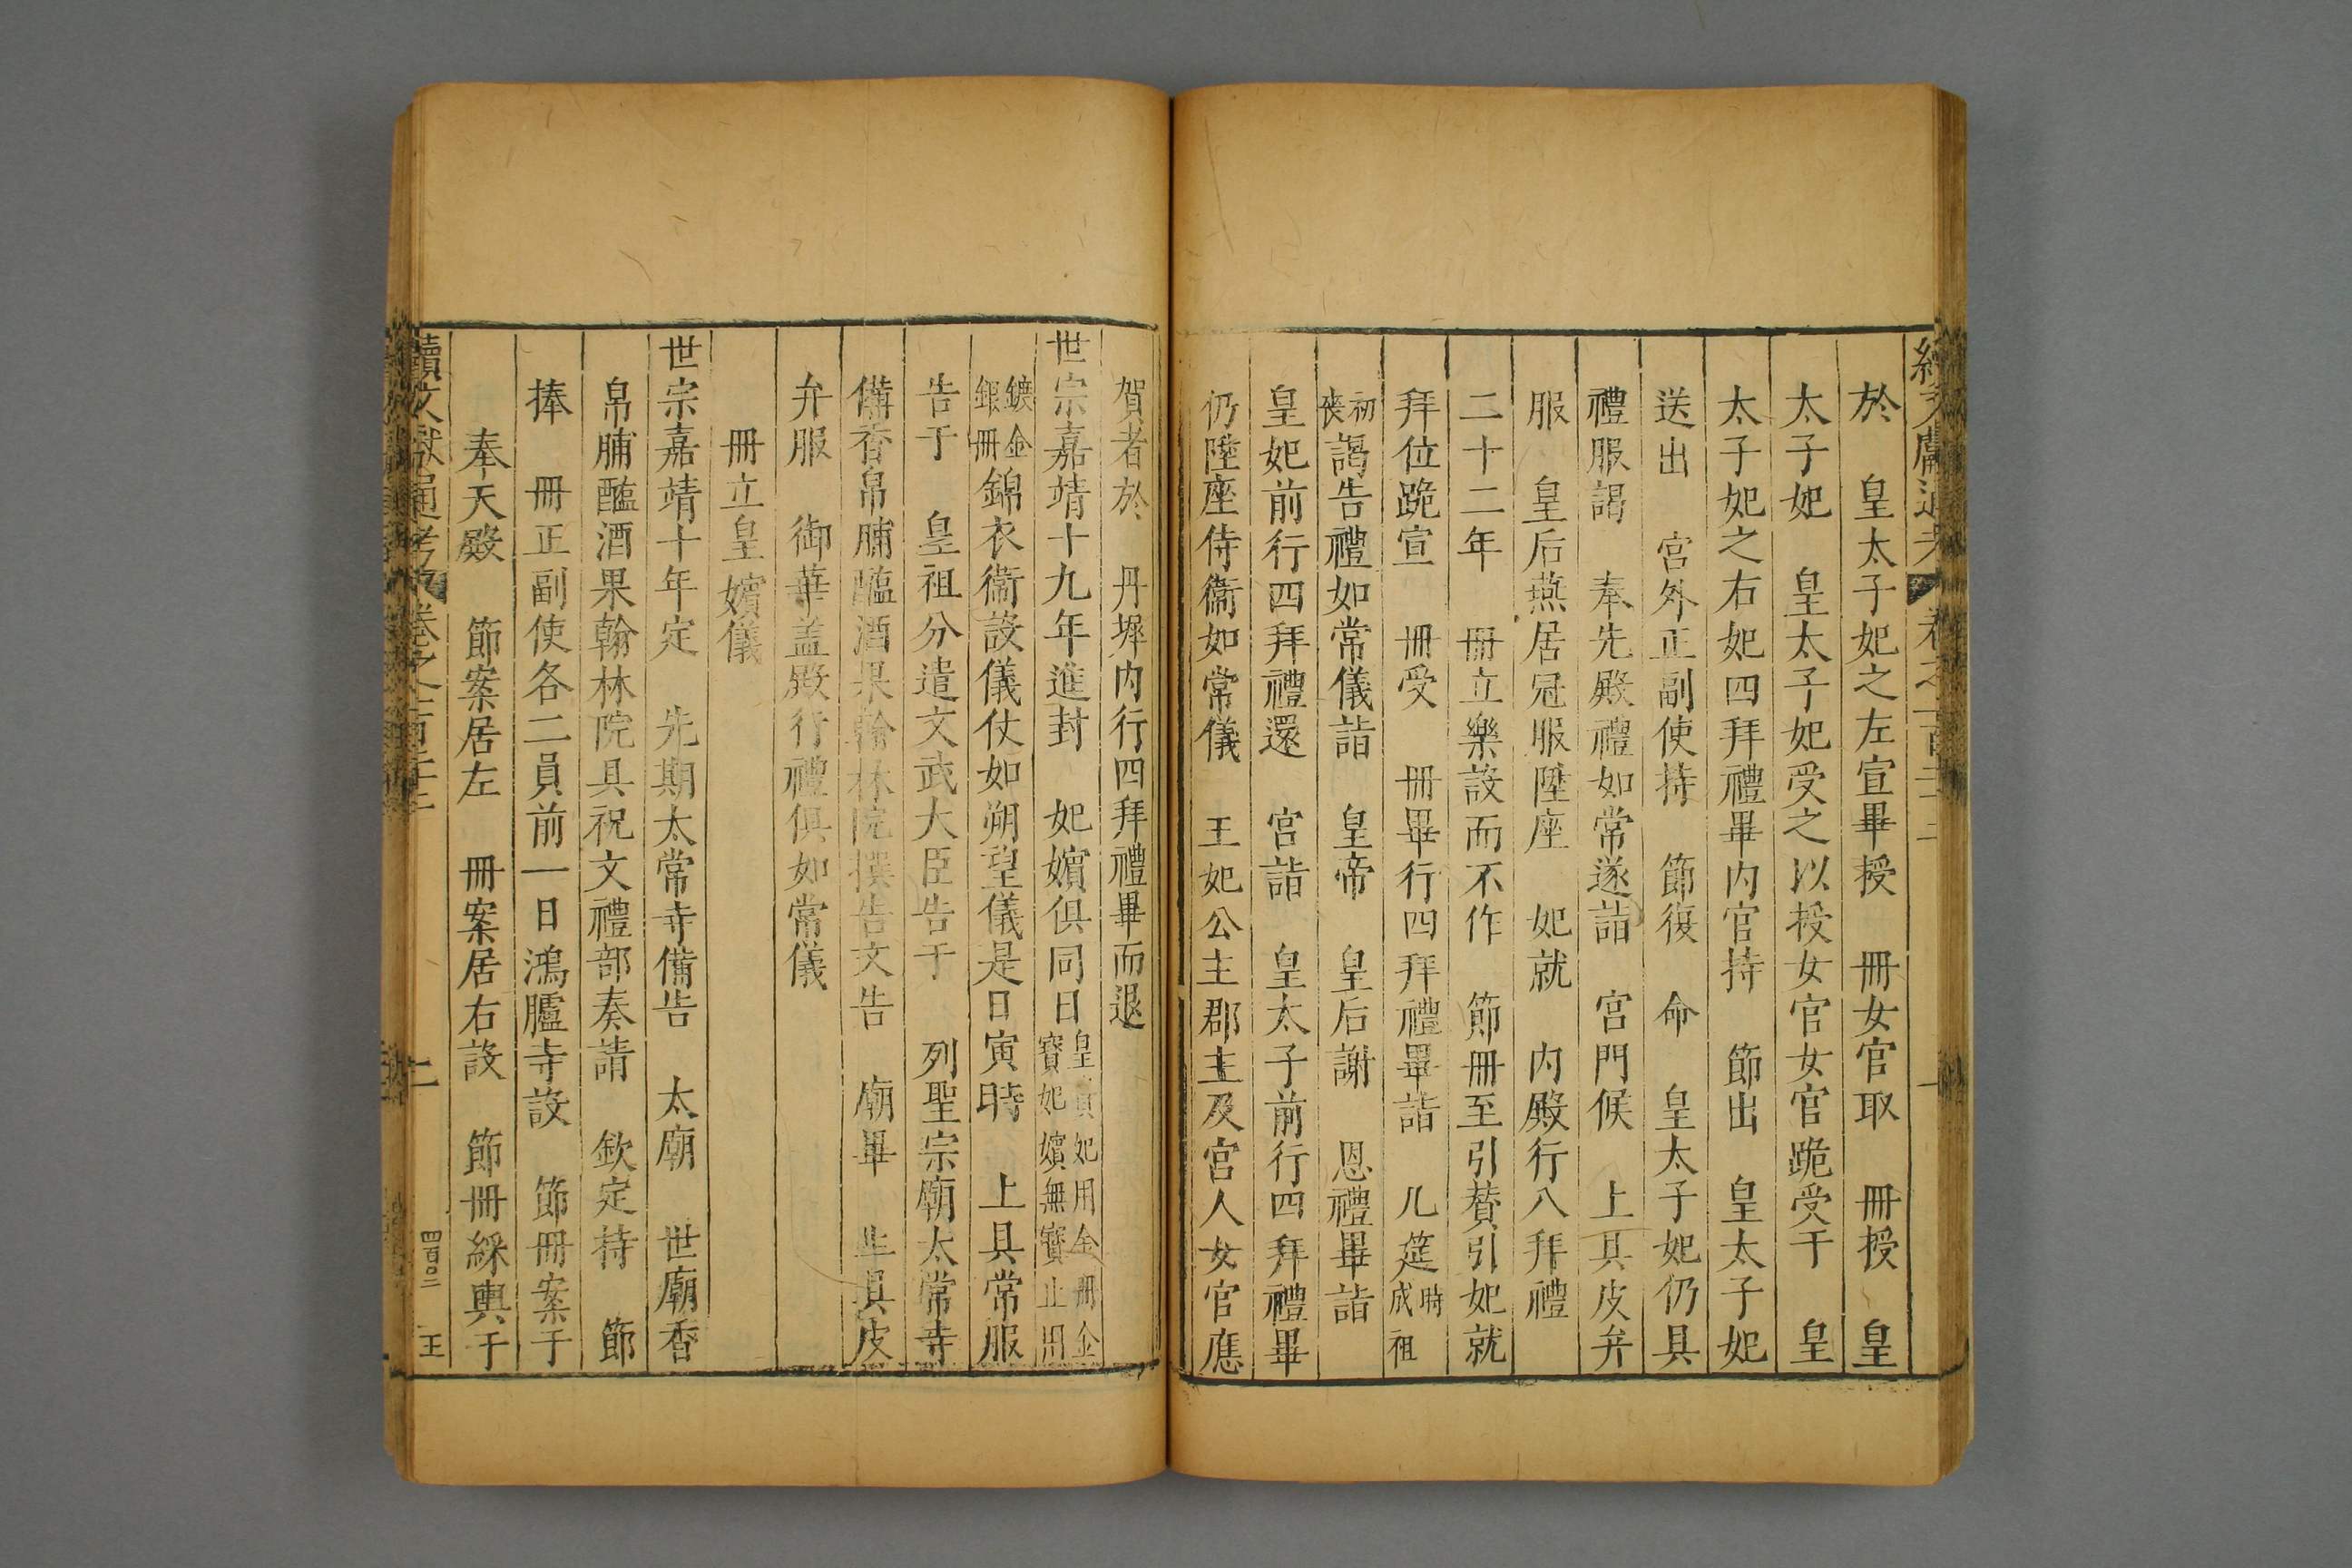 於　皇太子妃之左宣畢授　冊女官取　冊授　皇
太子妃　皇太子妃受之以授女官女官跪受于　皇
太子妃之右妃四拜禮畢內官持　節出　皇太子妃
送出　宮外正副使持　節復　命　皇太子妃仍具
禮服謁　奉先殿禮如常遂詣　宮門候　上具皮弁
服　皇后燕居冠服陞座　妃就　內殿行八拜禮
二十二年　冊立樂設而不作　節冊至引贊引妃就
拜位跪宣　冊受　冊畢行四拜禮畢詣　几筵時成祖
初喪謁告禮如常儀詣　皇帝　皇后謝　恩禮畢詣
皇妃前行四拜禮還　宮詣　皇太子前行四拜禮畢
仍陞座侍衞如常儀　王妃公主郡主及宮人女官應
賀者於　丹墀內行四拜禮畢而退
世宗嘉靖十九年進封　妃嬪俱同日皇貴妃用金冊金寶妃嬪無寶止用
鍍金銀冊錦衣衞設儀仗如朔望儀是日寅時　上具常服
告于　皇祖分遣文武大臣告于　列聖宗廟太常寺
備香帛脯醢酒果翰林院撰告文告　廟畢　上具皮
弁服　御華蓋殿行禮俱如常儀
冊立皇嬪儀
世宗嘉靖十年定　先期太常寺備告　太廟　世廟香
帛脯醢酒果翰林院具祝文禮部奏請　欽定持　節
捧　冊正副使各二員前一日鴻臚寺設　節冊案于
奉天殿　節案居左　冊案居右設　節冊綵輿于
續文獻通考　卷之　二　四百〇二　王